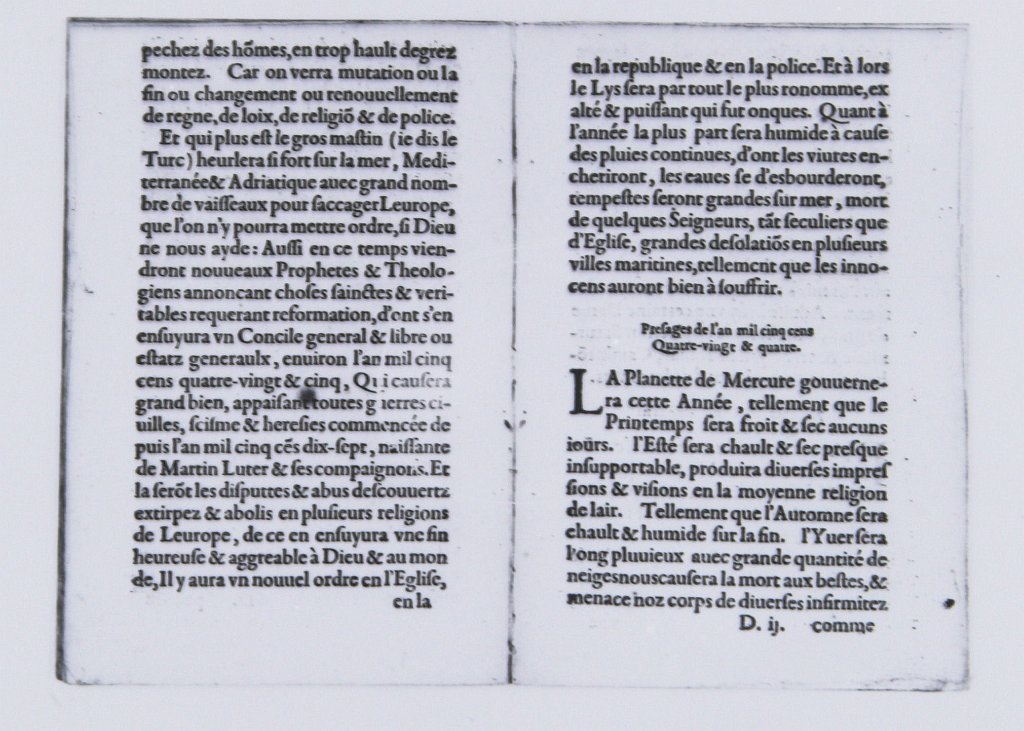 pechez des hõmes,en trop hault degrez
montez. Car on verra mutation ou la
fin ou changement ou renouuellement
de regne,de loix,de religiõ & de police.
Et qui plus eſt le gros maſtin (ie dis le
Turc) heurlera ſi fort ſur la mer, Medi-
terranée& Adriatique auec grand nom-
bre de vaiſſeaux pour ſaccager Leurope,
que l'on n'y pourra mettre ordre,ſi Dieu
ne nous ayde: Auſſi en ce temps vien-
dront nouueaux Prophetes & Theolo-
giens annoncant choſes ſainctes & veri-
tables requerant reformation,d'ont s'en
enſuyura vn Concile general & libre ou
eſtatz generaulx, enuiron l'an mil cinq
cens quatre-vingt & cinq, Qui cauſera
grand bien, appaiſant toutes guerres ci-
uilles, ſciſme & hereſies commencée de
puis l'an mil cinq cẽs dix-ſept, naiſſante
de Martin Luter & ſes compaignons.Et
la ſerõt les diſputtes & abus deſcouuertz
extirpez & abolis en pluſieurs religions
de Leurope, de ce en enſuyura vne fin
heureuſe & aggreable à Dieu & au mon
de,Il y aura vn nouuel ordre en l'Egliſe,
en la
en la republique & en la police.Et à lors
le Lys ſera par tout le plus ronomme,ex
alté & puiſſant qui fut onques. Quant à
l'année la plus part ſera humide à cauſe
des pluies continues,d'ont les viures en-
cheriront, les eaues ſe d'esbourderont,
tempeſtes ſeront grandes ſur mer, mort
de quelques Seigneurs, tãt ſeculiers que
d'Egliſe, grandes deſolatiõs en pluſieurs
villes maritines,tellement que les inno-
cens auront bien à ſouffrir.
Preſages de l'an mil cinq cens
Quatre-vingt & quatre.
LA Planette de Mercure gouuerne-
ra cette Année, tellement que le
Printemps ſera froit & ſec aucuns
ioũrs. l'Eſté ſera chault & ſec preſque
inſupportable, produira diuerſes impreſ
ſions & viſions en la moyenne religion
de lair. Tellement que l'Automne ſera
chault & humide ſur la fin. l'Yuer ſera
l'ong pluuieux auec grande quantité de
neigesnouscauſera la mort aux beſtes,&
menace noz corps de diuerſes infirmitez
D. ij. comme